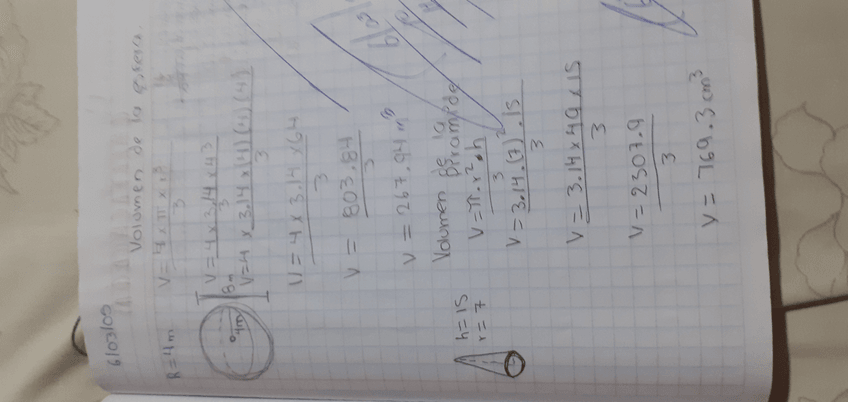 6/03/00
Volumen de la esfera.
R = 4m
V = 4 x π x r³
3
V = 4 x 3.14 x 4³
3
8m
4m
V = 4 x 3.14 x (4) (4) (4)
3
V = 4 x 3.14 x 64
3
V = 803.84
3
V = 267.94 m³
Volumen de la
Piramide
h = 15
r = 7
V = π. r². h
3
V = 3.14. (7)². 15
3
V = 3.14 x 49 x 15
3
V = 2307.9
3
V = 769.3 cm³